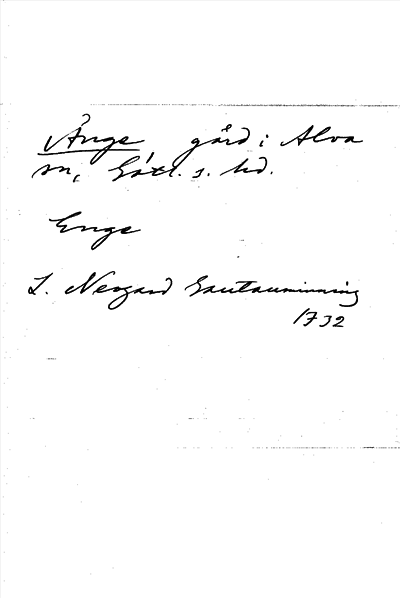 Änge, gård i Alva
sn, Gotl. s. hd.
Enge
L. Nergard Gautauminning
1732